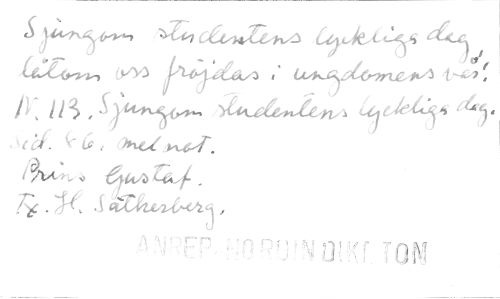 Sjungom studentens lyckliga dag
låtom oss fröjdas i ungdomens vår!
N. 113. Sjungom studentens lyckliga dag.
sid. 86. mel not.
Prins Gustaf.
Tx. H. Sätherberg.
ANREP-NORDIN DIKT TON